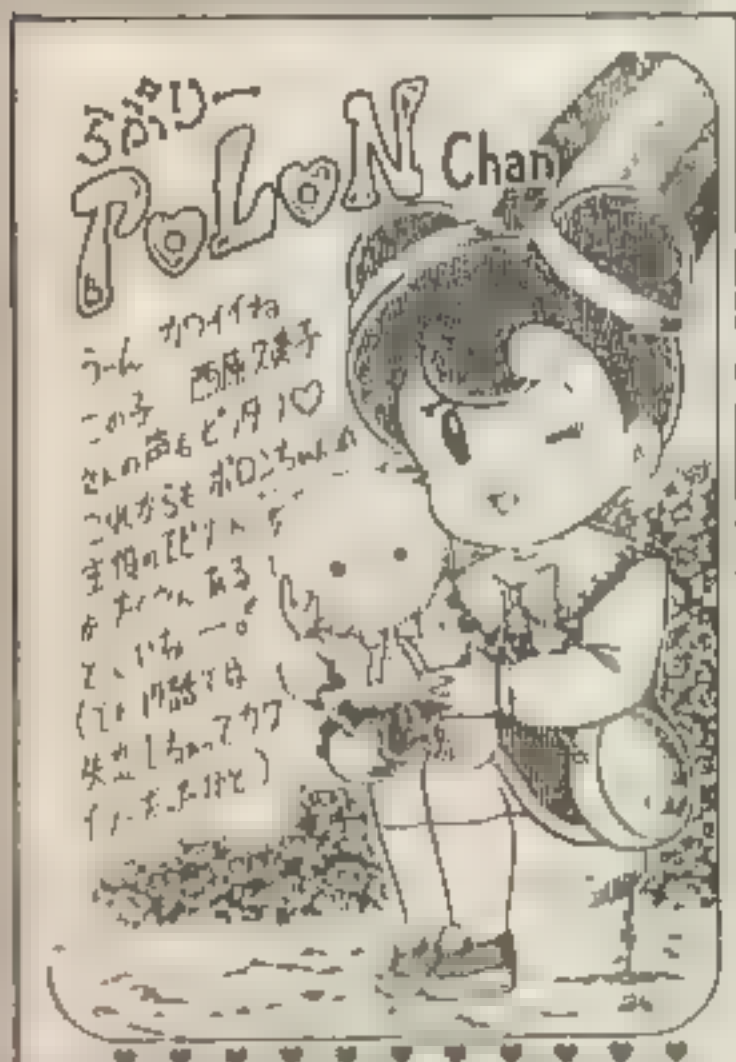 らぶりー
POLON Chan
うーん カワイイね
この子 西原久美子
さんの声もピッタリ♡
これからもポロンちゃんが
主役のエピソードが
たくさんある
といいねー。
(でも 17話では
失恋しちゃってカワ
イソーだったけど)